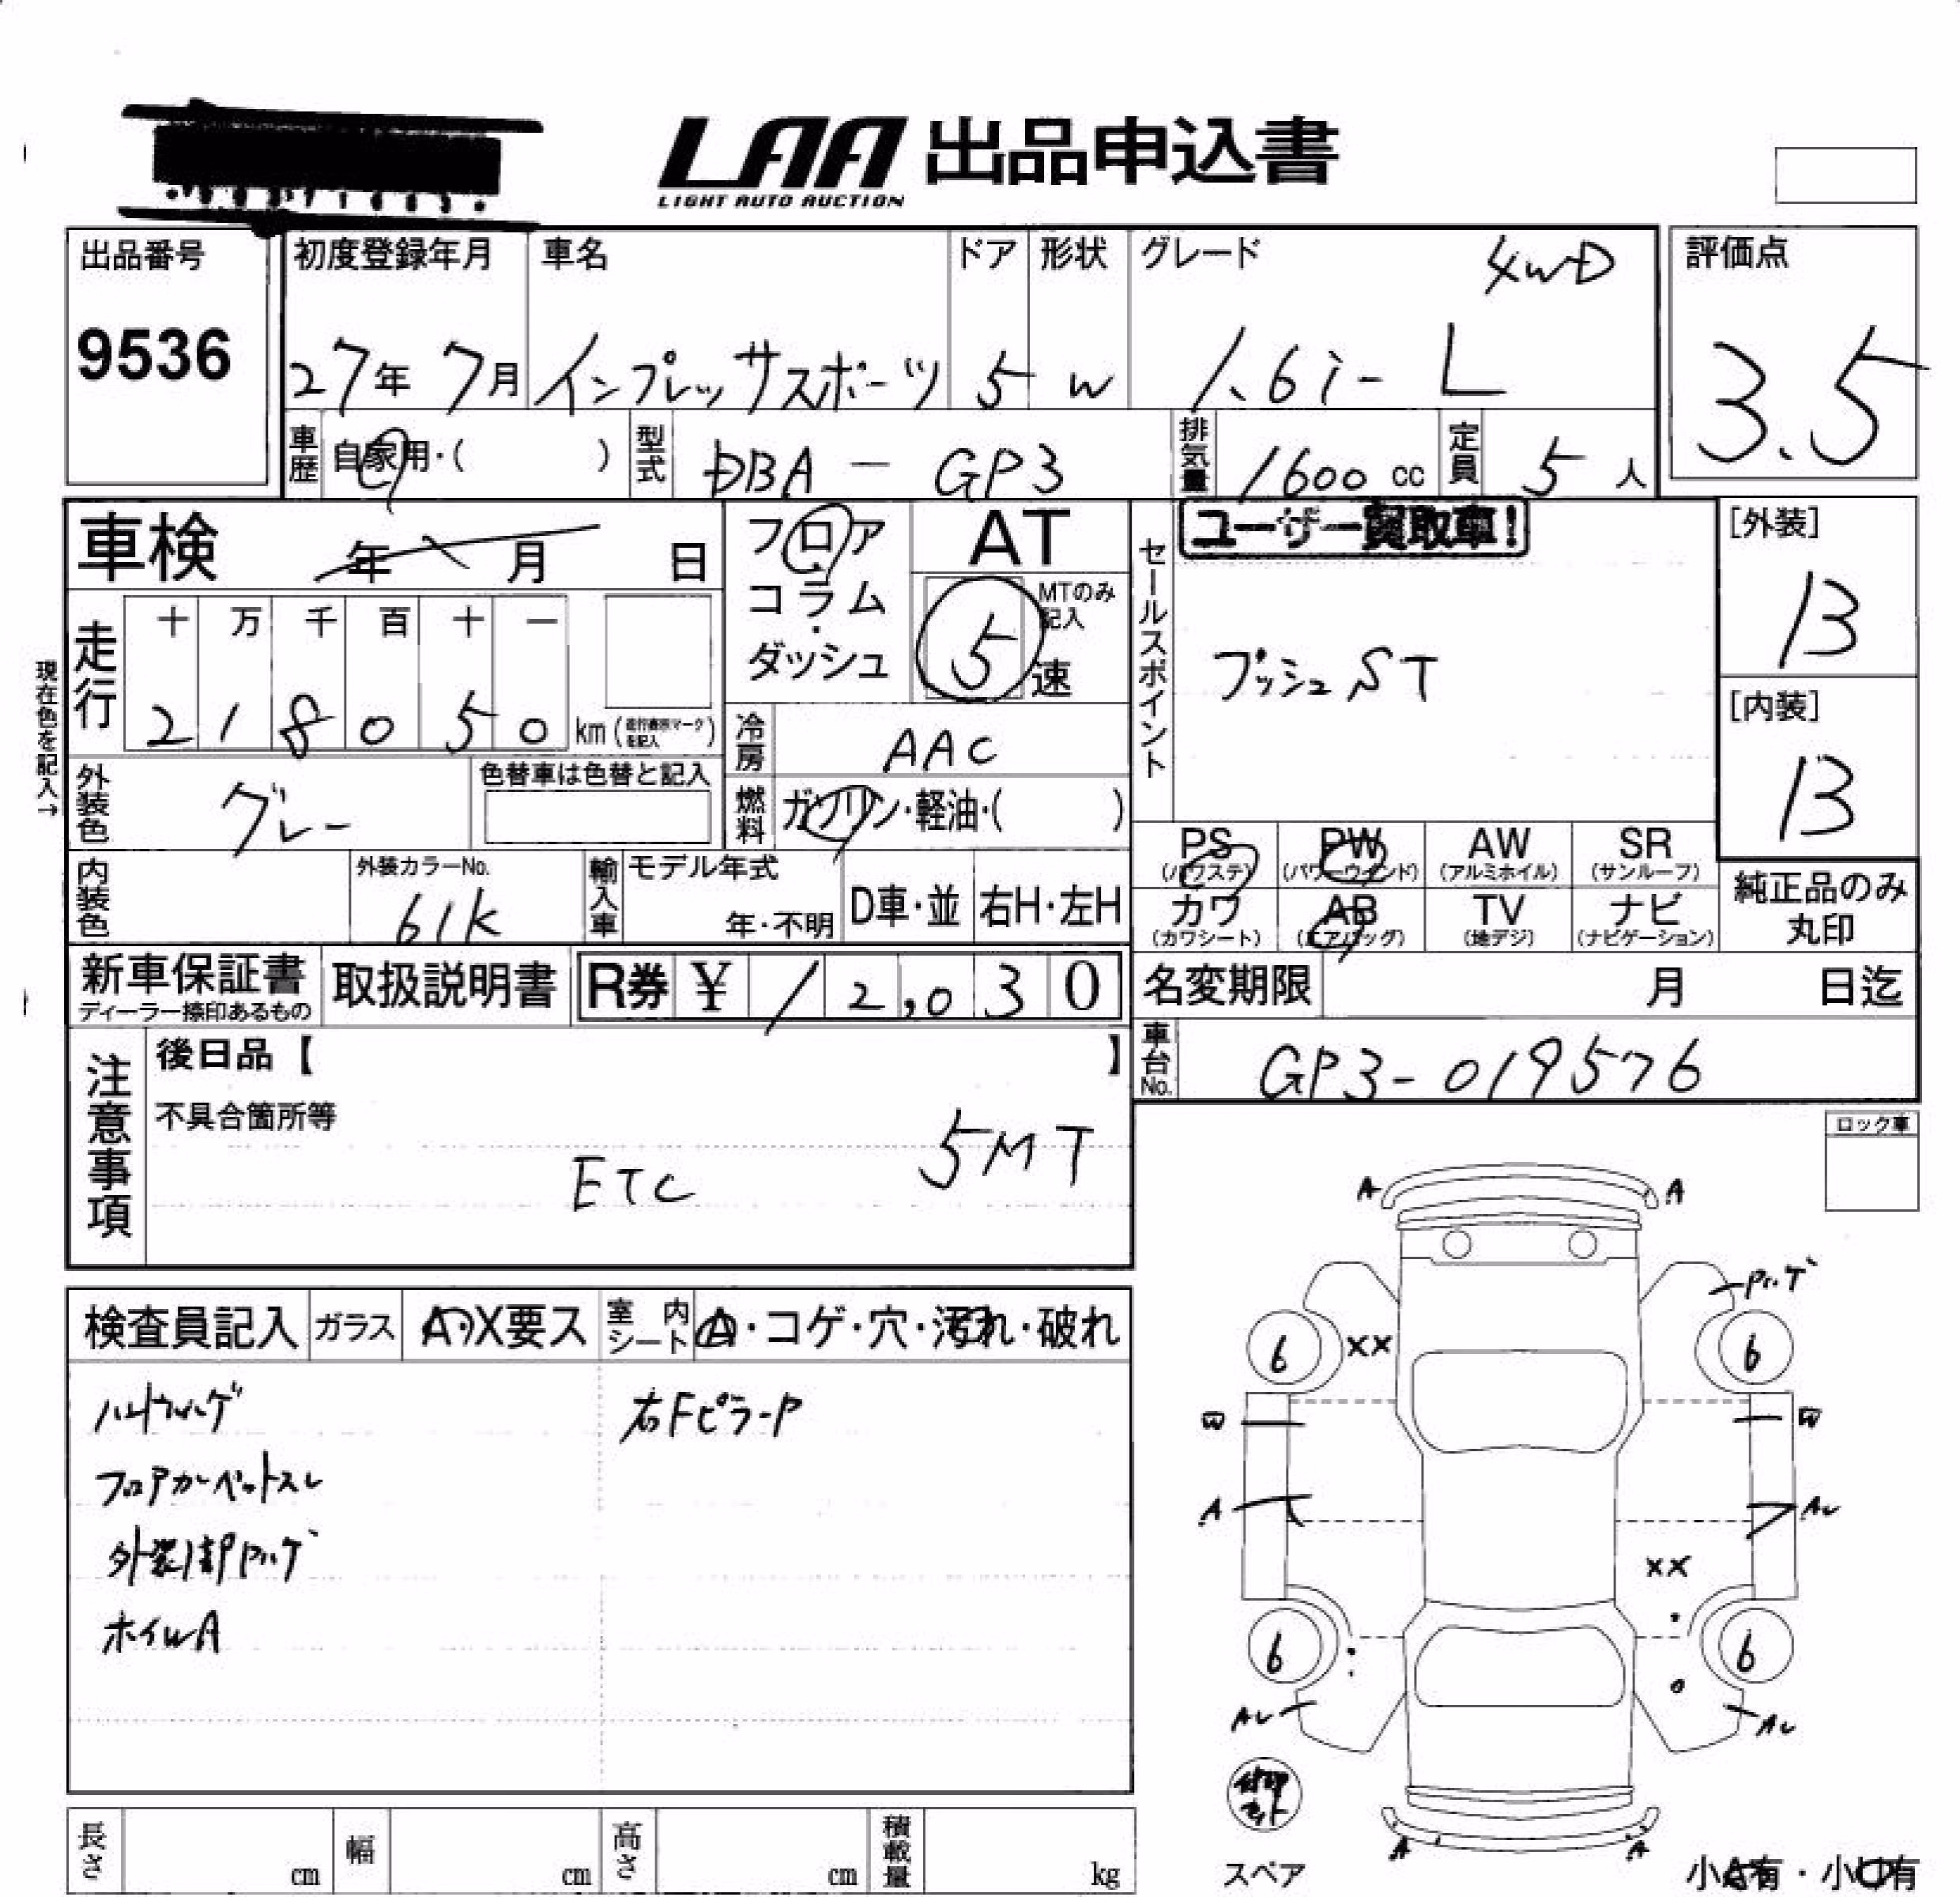 LAA 出品申込書
LIGHT AUTO AUCTION
出品番号 初度登録年月 車名 ドア 形状 グレード 4WD 評価点
9536 27年 7月 インプレッサスポーツ 5 W 1.6i-L 3.5
車歴 自家用・( ) 型式 DBA-GP3 排気量 1600 cc 定員 5 人
車検 年 月 日 フロア AT ユーザー買取車! [外装]
コラム MTのみ記入 セールスポイント B
ダッシュ 5 速 プッシュST
走行 十 万 千 百 十 一
2 1 8 0 5 0 km
現在色を記入→
冷房 AAC [内装]
外装色 グレー 色替車は色替と記入 燃料 ガソリン・軽油・( ) B
PS (パワステ) PW (パワーウインド) AW (アルミホイル) SR (サンルーフ)
内装色 外装カラーNo. 61K 輸入車 モデル年式 年・不明 D車・並 右H・左H
カワ (カワシート) AB (エアバッグ) TV (地デジ) ナビ (ナビゲーション) 純正品のみ丸印
新車保証書 ディーラー捺印あるもの 取扱説明書 R券 ¥ 12,030 名変期限 月 日迄
注意事項 後日品【 】 車台No. GP3-019576
不具合箇所等
ETC 5MT
ロック車
A A
検査員記入 ガラス A・X要ス 室内シート A・コゲ・穴・汚れ・破れ
ハンドルハゲ 右FピラーP
フロアカーペットスレ
外装1部Pハゲ
ホイルA
Pハゲ
6 XX 6
W W
A AU
XX
6 6
AU AU
A A
スペア
長さ cm 幅 cm 高さ cm 積載量 kg
小A有・小U有